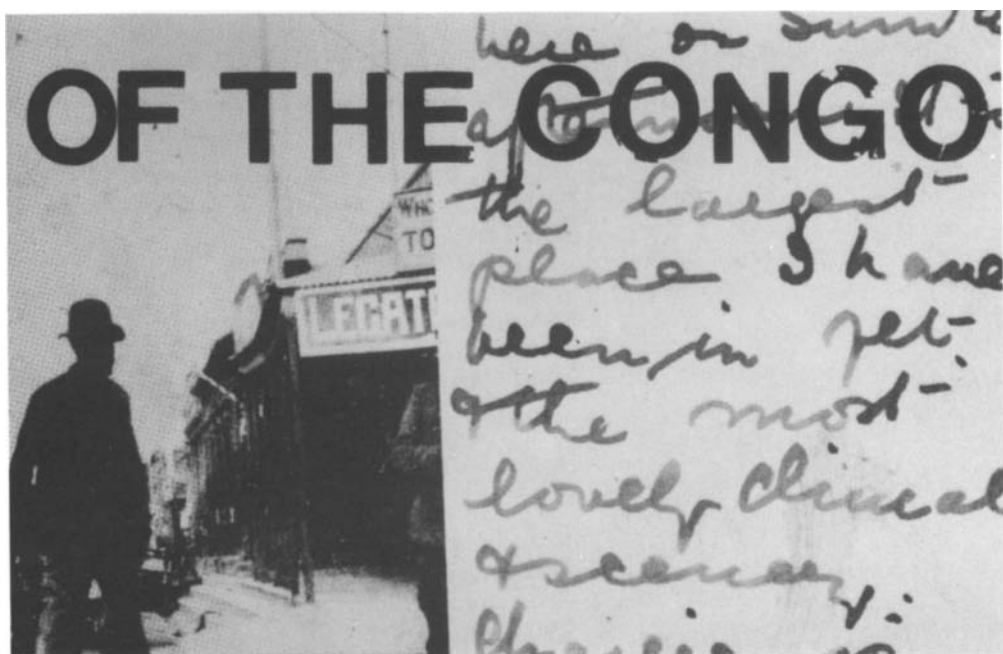 OF THE CONGO
WHO
TO
LEGAT
here on Sunda
afternoon it
the largest
place I have
been in yet
& the most
lovely climat
& scenery.